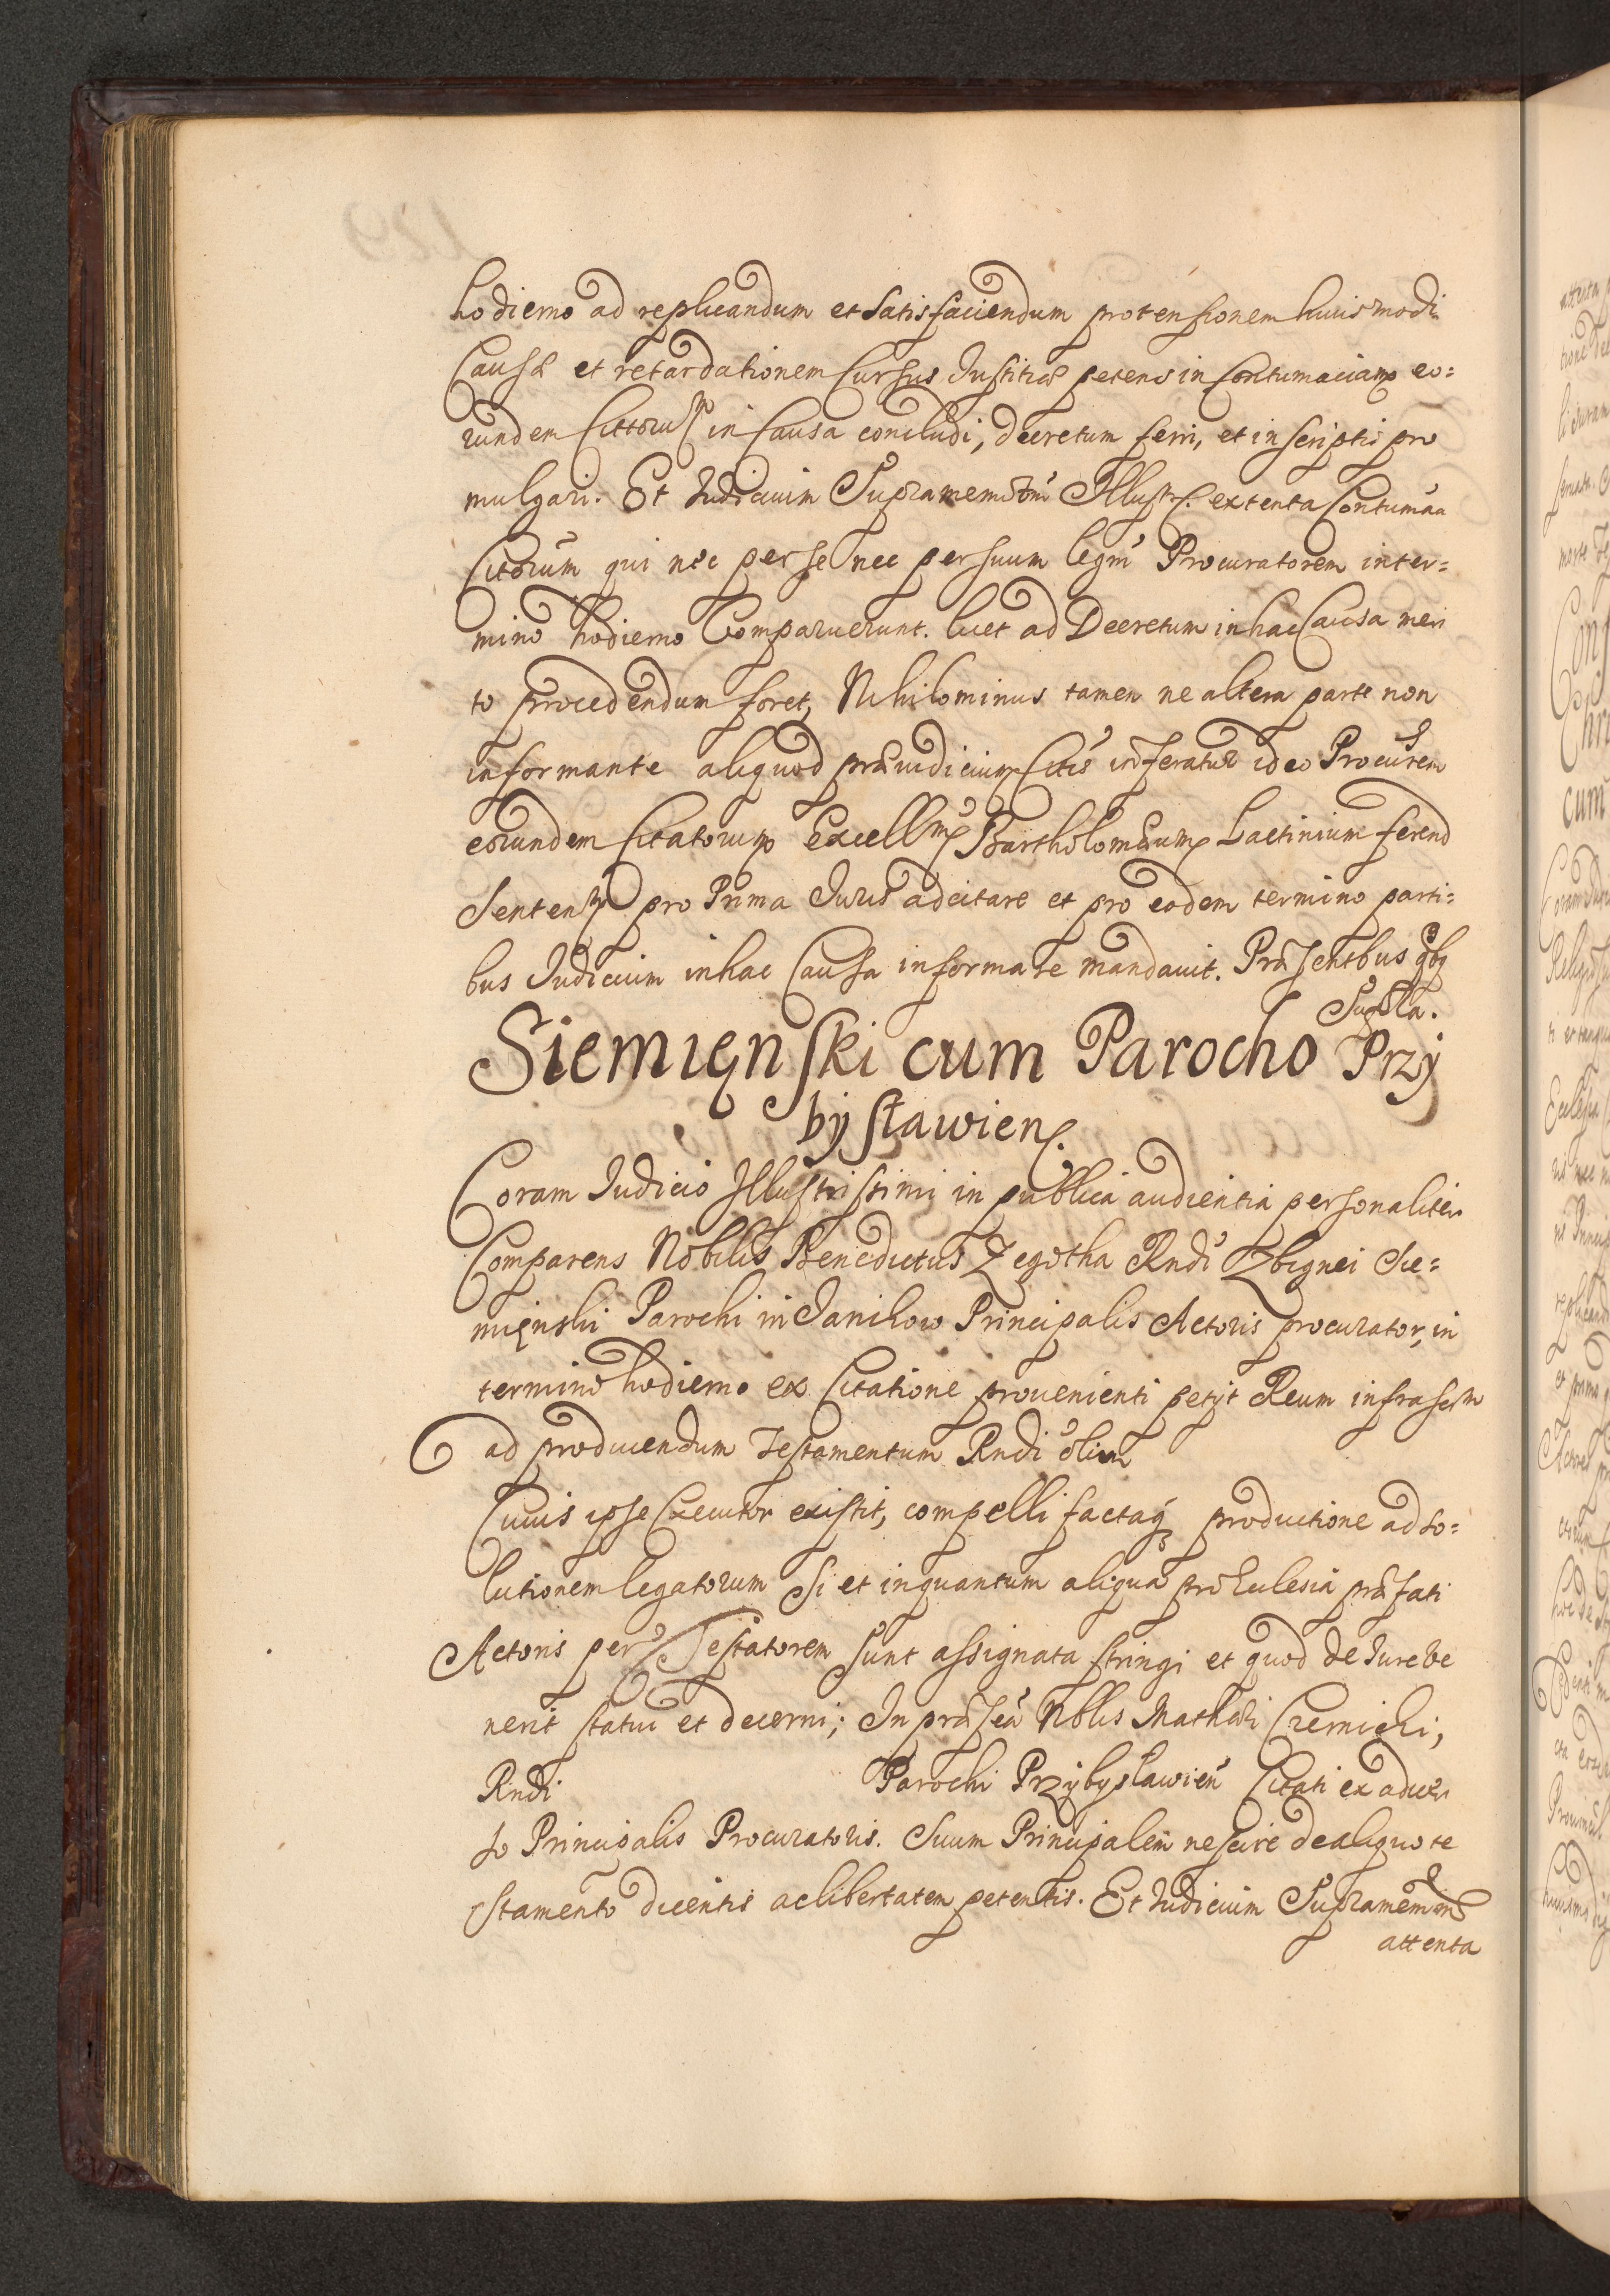 hodierno ad replicandum et satisfaciendum protensionem huiusmodi
Causæ et retardationem Cursus Justitiæ petens in Contumaciam eo=
rundem Cittorum in Causa concludi, decretum ferri, et in scriptis pro
mulgari. Et Judicium Supramemōtm̄ Illustr. extenta Contumaā
Citōrum qui nec per se nec per suum legm̄ Procuratorem in ter=
mino hodierno Comparuerunt. licet ad Decretum in hac Causa meri
to procedendum foret, Nihilominus tamen ne altera parte non
informante aliquod præiudicium Citis inferatur ideo Procurem
eorundem Citatorum Excellm̄ Bartholomæum Lactinium ferend
Senten pro Prima Juris adcitare et pro eodem termino parti=
bus Judicium in hac Causa informare mandauit. Præsentbus qbȝ
Supra.
Siemięnski cum Parocho Przÿ
bÿsławien.
Coram Judicio Illustrissimi in publica audientia personaliter
Comparens Nobilis Benedictus Zegotha Rndi Zbignei Sie=
mięnski Parochi in Janikow Principalis Actoris procurator, in
termino hodierno ex Citatione prouenienti petÿt Reum infrascrm
ad producendum Testamentum Rndi olim
Cuius ipse Executor existit, compelli factaqȝ productione ad so=
lutionem legatorum Si et inquantum aliqua pro Eclesia præfati
Actoris per Testatorem sunt assignata stringi et quod de Jure ve
nerit statui et decerni; In præseā Nblis Mathæi Czernicki,
Rndi Parochi Przÿbÿsławień Citati ex aduer
so Principalis Procuratoris. Suum Principalem nescire de aliquo te
stamento dicentis ac libertatem petentis. Et Judicium Supramem
attenta